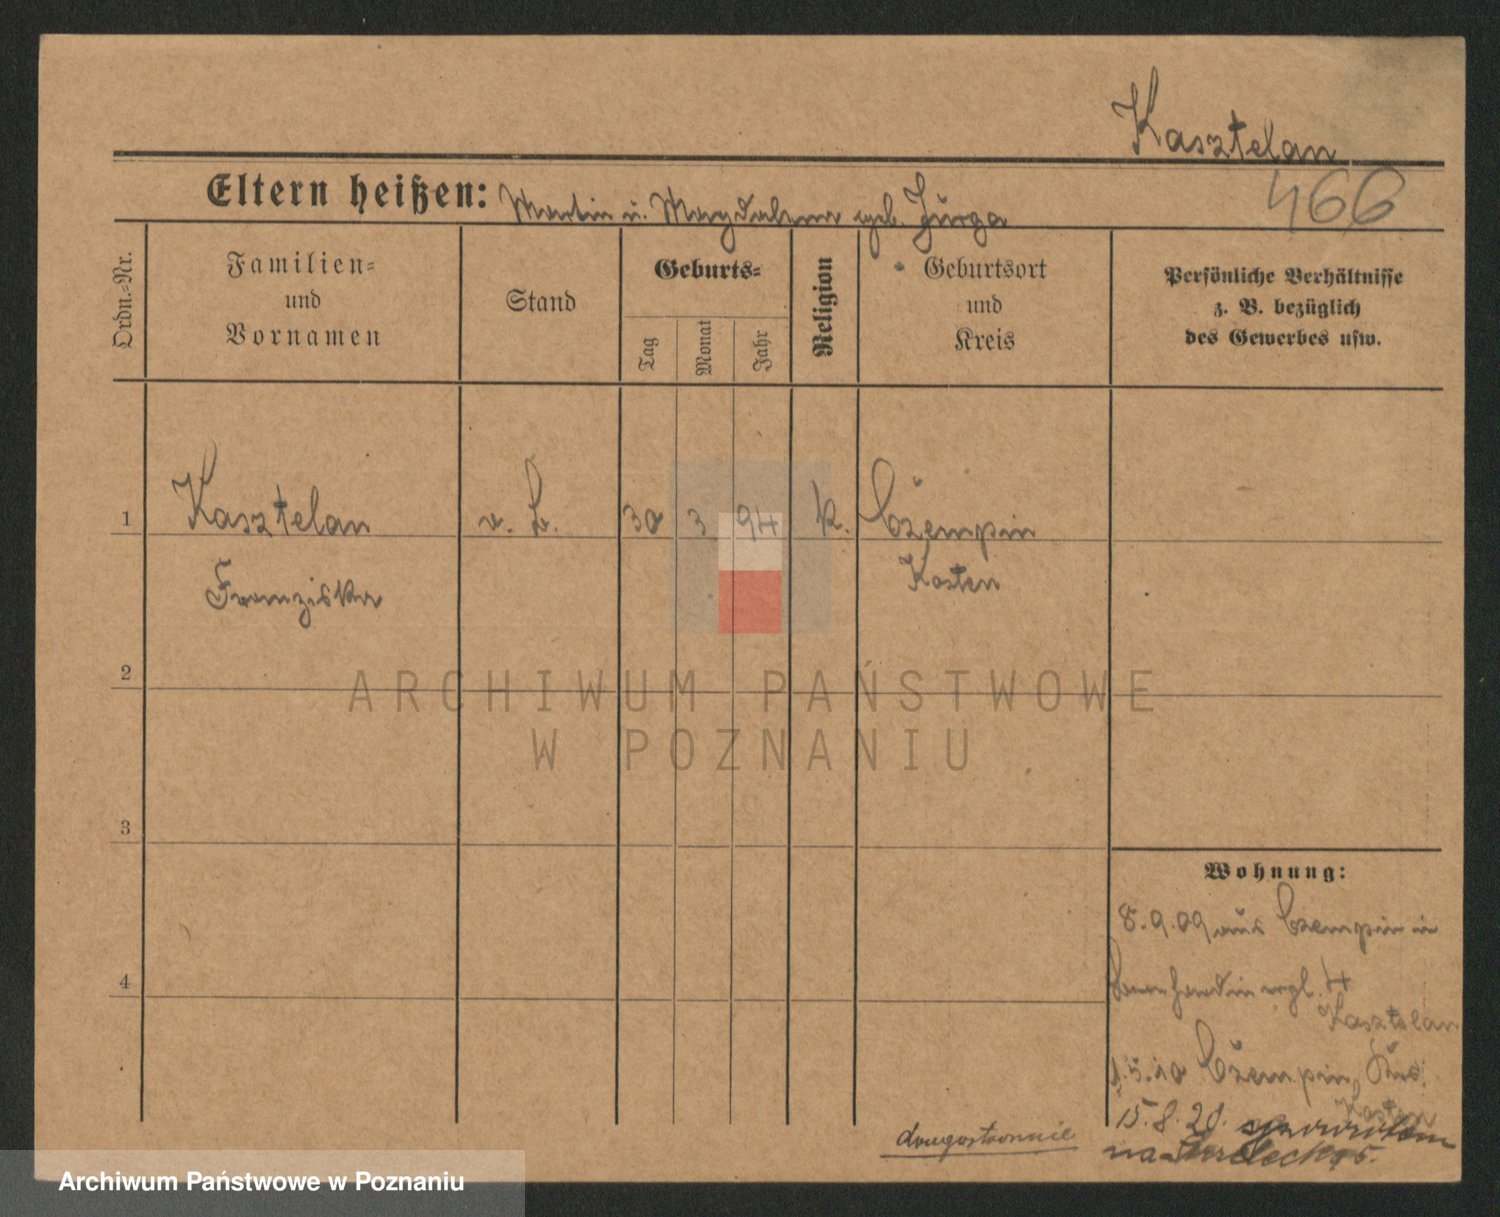 Kasztelan
Eltern heißen: Martin u. Magdalena geb. Jurga
466
Ordn.-Nr.
Familien-
und
Vornamen
Stand
Geburts-
Tag
Monat
Jahr
Religion
Geburtsort
und
Kreis
Persönliche Verhältnisse
z. B. bezüglich
des Gewerbes usw.
1
Kasztelan
30
3
94
k.
Czempin
Franziska
Kosten
2
ARCHIWUM PAŃSTWOWE
W POZNANIU
3
Wohnung:
8.9.09 aus Czempin in
4
4
Kasztelan
1.5.10 Czempin, Krs.
Kosten
15.8.20.
dwugostronnie
na Strzelecką 5.
Archiwum Państwowe w Poznaniu